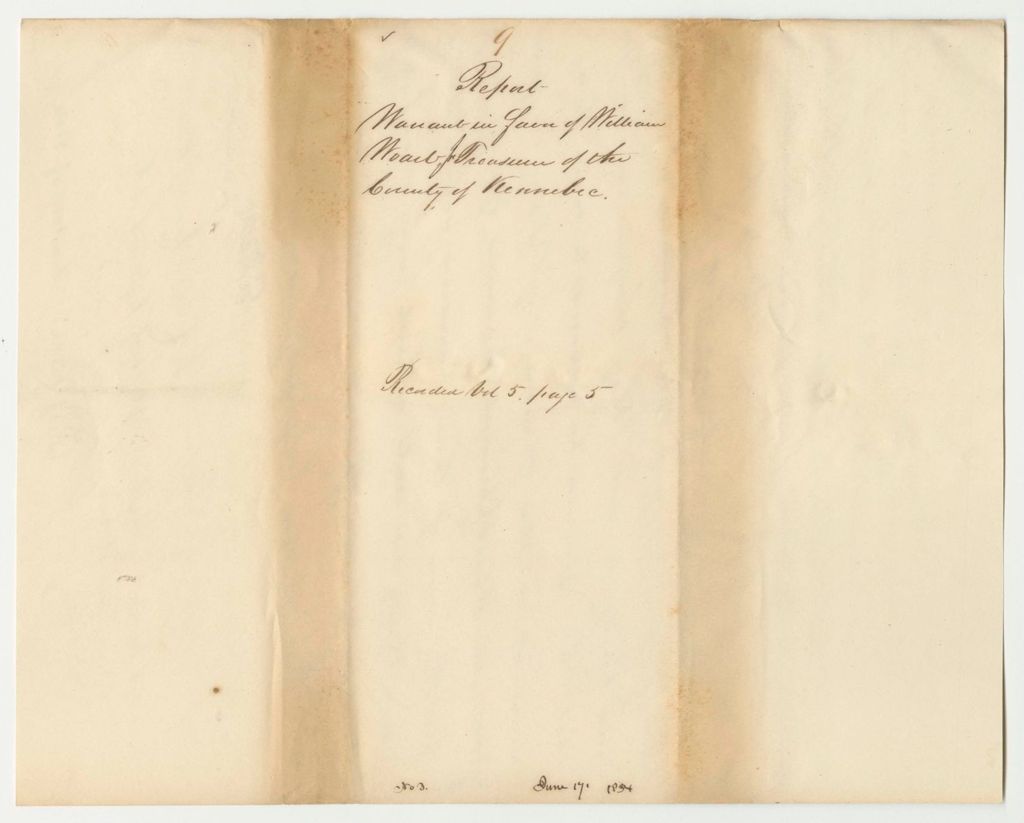 9
Report
Warrant in favor of William
Woart Jr Treasurer of the
County of Kennebec.
Recorded Vol 5. page 5
No 3. June 17, 1834